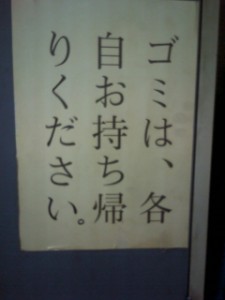 ゴミは、各
自お持ち帰
りください。